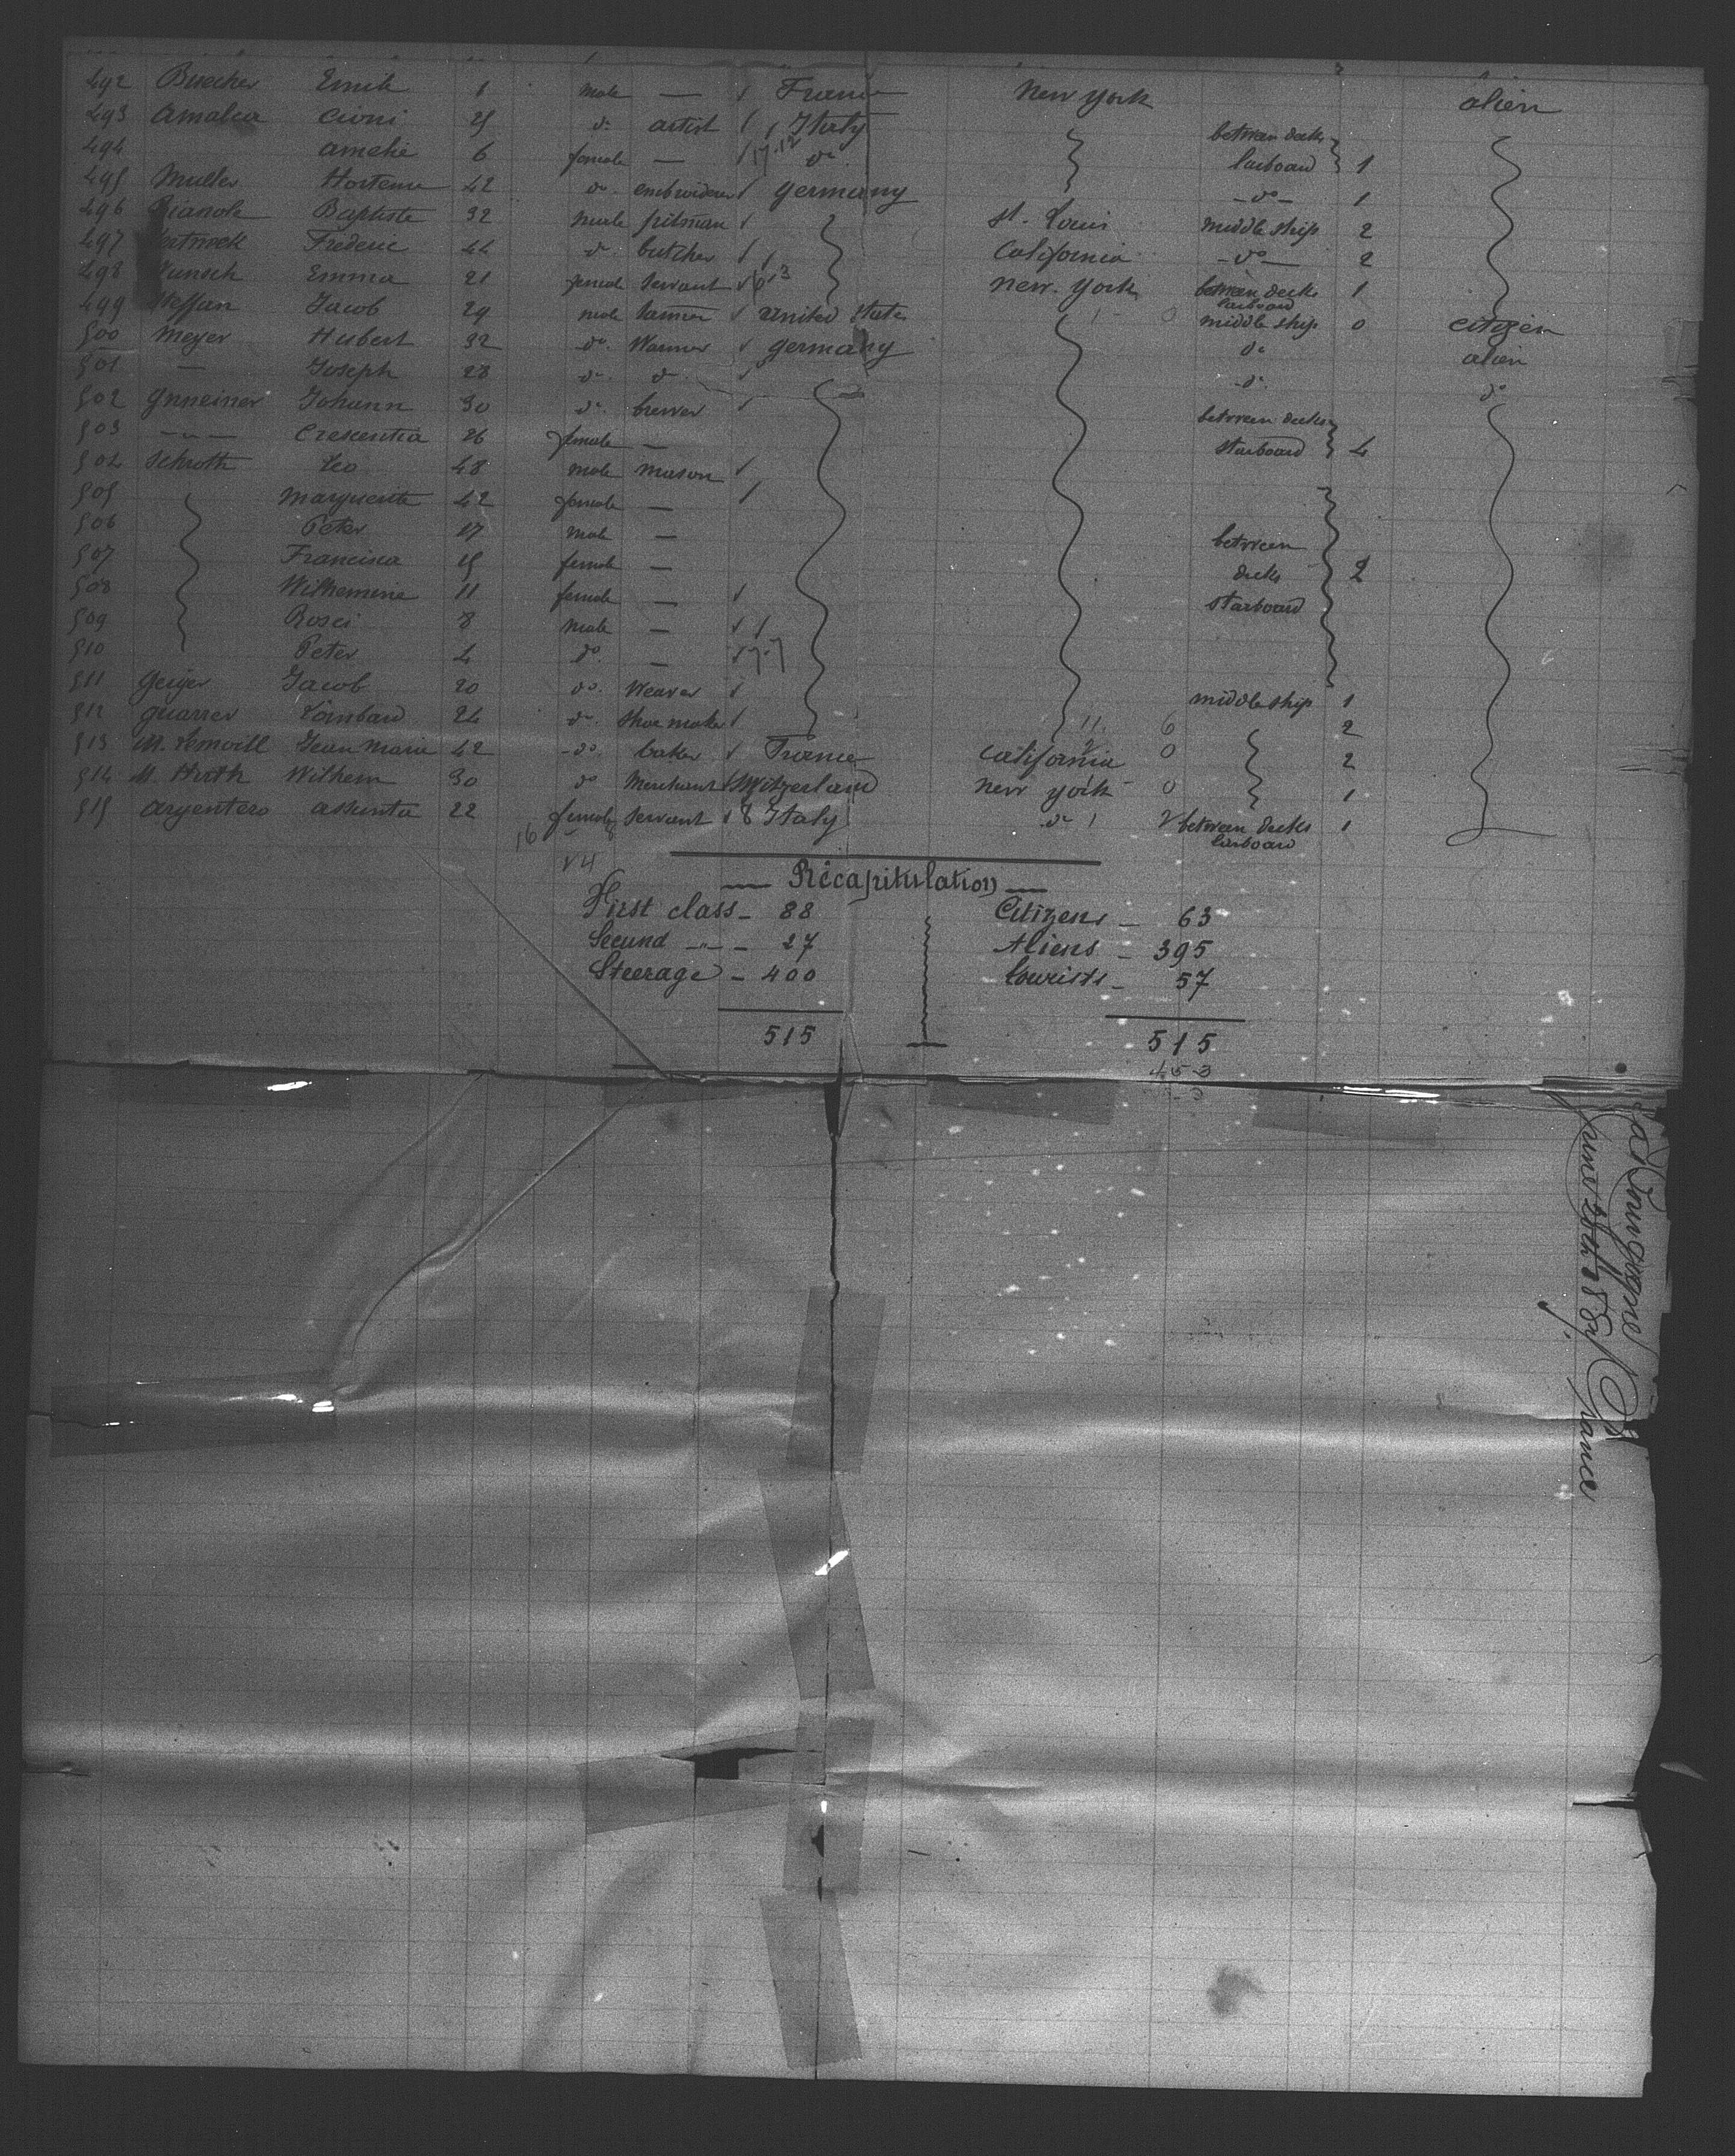 492 Buecher Emile 1 male — France New York alien
493 Amalia Cioni 25 do artist Italy between decks
494 Amelie 6 female — do larboard 1
495 Muller Hortense 42 do embroiderer Germany -do- 1
496 Baptiste 32 male pitman St. Louis middle ship 2
497 Frederic 44 do butcher California -do- 2
498 Emma 21 female servant New-York between decks larboard 1
499 Steffan Jacob 29 male United States middle ship 0 citizen
500 Meyer Hubert 32 do. Germany do alien
501 — Joseph 28 do. do -do- do
502 Johann 30 do. brewer between decks
503 -"- Crescentia 26 female — starboard 4
504 Schroth Leo 48 male mason
505 Marguerite 42 female —
506 Peter 17 male — between
507 Francisca 15 female — decks 2
508 Wilhemine 11 female — starboard
509 8 male —
510 Peter 4 do. —
511 Geiger Jacob 20 do. Weaver middle ship 1
512 24 do. shoe maker 2
513 Jean Marie 42 -do. baker France California 0 2
514 M. Hirth Wilhem 30 do Merchant Switzerland New York 0 1
515 Argentero Assunta 22 female servant 8 Italy do between decks larboard 1
16
— Récapitulation —
First class - 88 Citizens - 63
Second -"- - 27 Aliens - 395
Steerage - 400 tourists - 57
515 515
453
June 28th 1887